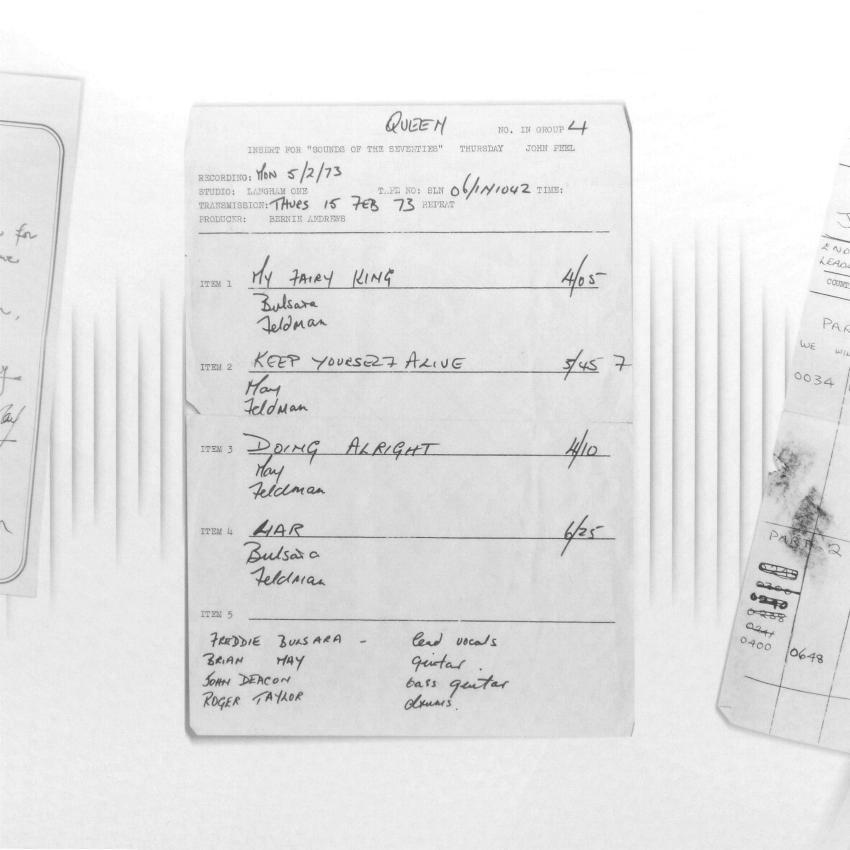 QUEEN NO. IN GROUP 4
INSERT FOR "SOUNDS OF THE SEVENTIES" THURSDAY JOHN PEEL
RECORDING: MON 5/2/73
STUDIO: LANGHAM ONE TAPE NO: SLN 06/1N1042 TIME:
TRANSMISSION: THURS 15 FEB 73 REPEAT
PRODUCER: BERNIE ANDREWS
ITEM 1 MY FAIRY KING 4/05
Bulsara
Feldman
ITEM 2 KEEP YOURSELF ALIVE 3/45 7
May
Feldman
ITEM 3 DOING ALRIGHT 4/10
May
Feldman
ITEM 4 LIAR 6/25
Bulsara
Feldman
ITEM 5
FREDDIE BULSARA - lead vocals
BRIAN MAY guitar.
JOHN DEACON bass guitar
ROGER TAYLOR drums.
for
PAR
WE
0034
PART 2
0400 0648